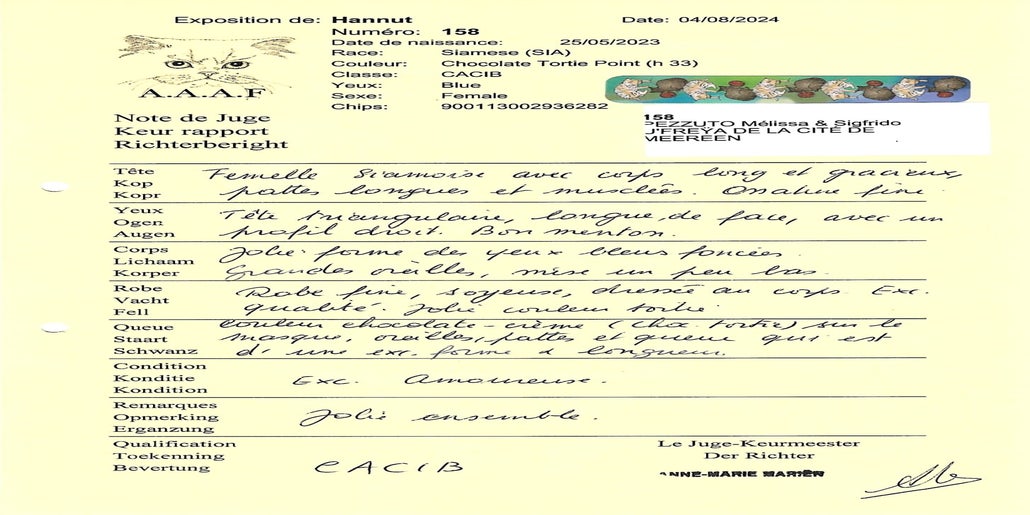 Exposition de: Hannut
Date: 04/08/2024
Numéro: 158
Date de naissance: 25/05/2023
Race: Siamese (SIA)
Couleur: Chocolate Tortie Point (h 33)
Classe: CACIB
Yeux: Blue
Sexe: Female
Chips: 900113002936282
A.A.A.F
Note de Juge
Keur rapport
Richterberight
158
PEZZUTO Mélissa & Sigfrido
J'FREYA DE LA CITÉ DE
MEEREEN
Tête Femelle Siamoise avec corps long et gracieux,
Kop
Kopr pattes longues et musclées. Ossature fine
Yeux Tête triangulaire, longue, de face, avec un
Ogen
Augen profil droit. Bon menton.
Corps Jolie forme des yeux bleus foncées.
Lichaam
Korper Grandes oreilles, mise un peu bas.
Robe Robe fine, soyeuse, dressée au corps. Exc.
Vacht
Fell qualité. Jolie couleur tortie
Queue couleur chocolate-crème (choc. tortie) sur le
Staart masque, oreilles, pattes et queue qui est
Schwanz d'une exc. forme & longueur.
Condition
Konditie Exc. Amoureuse.
Kondition
Remarques
Opmerking Jolie ensemble.
Erganzung
Qualification
Toekenning
Bevertung CACIB
Le Juge-Keurmeester
Der Richter
ANNE-MARIE MARIËN